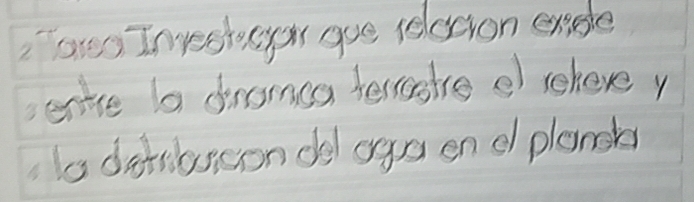 Tarea Investigar que relacion existe
entre la dinamica terrestre el relieve y
la distribuicion del agua en el planeta